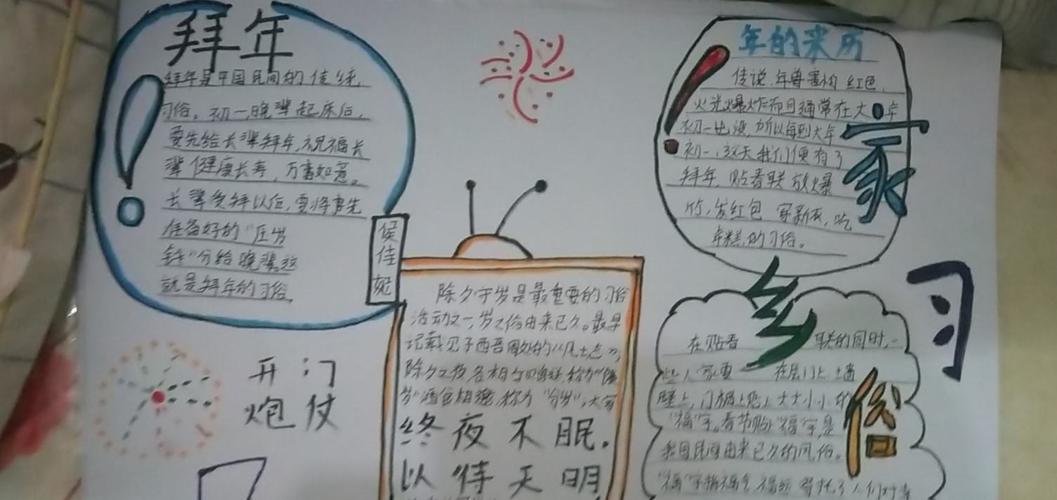 拜年
拜年是中国民间的传统
习俗。初一晚辈起床后,
要先给长辈拜年,祝福长
辈健康长寿,万事如意。
长辈受拜以后,要将事先
准备好的"压岁
钱"分给晚辈这
就是拜年的习俗。
侯佳妮
开门
炮仗
除夕守岁是最重要的习俗
活动之一,守岁之俗由来已久。最早
记载见于西晋
除夕之夜各相与赠送,称为"馈
岁",酒食相邀,称为"分岁",大家
终夜不眠.
以待天明
年的来历
传说,年兽害怕红色,
火光爆炸而且通常在大年
初一出没,所以每到大年
初一,这天我们便有了
拜年,贴春联,放爆
竹,发红包 穿新衣,吃
年糕,的习俗。
家乡习俗
在贴春联的同时,一
些人家要在屋门上,墙
壁上,门楣上贴上大大小小的
"福"字。春节贴"福"字,是
我国民间由来已久的风俗。
"福"字指福气,福运,寄托了人们对幸